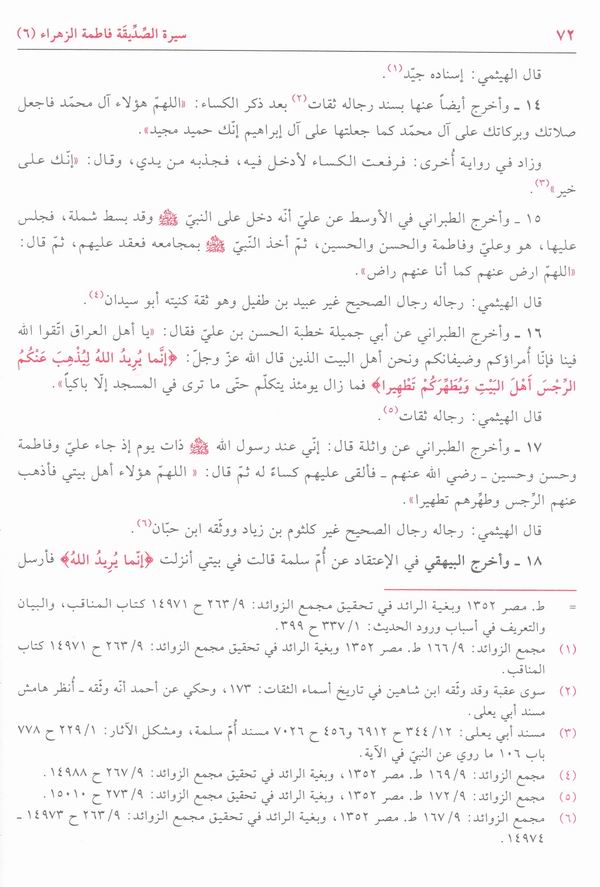 ٧٢ سيرة الصِّدِّيقَة فاطمة الزهراء (٦)
قال الهيثمي: إسناده جيّد(١).
١٤ ـ وأخرج أيضاً عنها بسند رجاله ثقات(٢) بعد ذكر الكساء: «اللهمّ هؤلاء آل محمّد فاجعل
صلاتك وبركاتك على آل محمّد كما جعلتها على آل إبراهيم إنّك حميد مجيد».
وزاد في رواية أُخرى: فرفعت الكساء لأدخل فيه، فجذبه من يدي، وقال: «إنّك على
خير»(٣).
١٥ ـ وأخرج الطبراني في الأوسط عن عليّ أنّه دخل على النبيّ ﷺ وقد بسط شملة، فجلس
عليها، هو وعليّ وفاطمة والحسن والحسين، ثمّ أخذ النّبيّ ﷺ بمجامعه فعقد عليهم، ثمّ قال:
«اللهمّ ارض عنهم كما أنا عنهم راض».
قال الهيثمي: رجاله رجال الصحيح غير عبيد بن طفيل وهو ثقة كنيته أبو سيدان(٤).
١٦ ـ وأخرج الطبراني عن أبي جميلة خطبة الحسن بن عليّ فقال: «يا أهل العراق اتّقوا الله
فينا فإنّا أُمراؤكم وضيفانكم ونحن أهل البيت الذين قال الله عزّ وجلّ: ﴿إِنَّما يُرِيدُ اللهُ لِيُذْهِبَ عَنْكُمُ
الرِّجْسَ أَهْلَ البَيْتِ وَيُطَهِّرَكُمْ تَطْهِيرا﴾ فما زال يومئذ يتكلّم حتّى ما ترى في المسجد إلّا باكياً».
قال الهيثمي: رجاله ثقات(٥).
١٧ ـ وأخرج الطبراني عن واثلة قال: إنّي عند رسول الله ﷺ ذات يوم إذ جاء عليّ وفاطمة
وحسن وحسين ـ رضي الله عنهم ـ فألقى عليهم كساءً له ثمّ قال: « اللهمّ هؤلاء أهل بيتي فأذهب
عنهم الرِّجس وطهِّرهم تطهيرا».
قال الهيثمي: رجاله رجال الصحيح غير كلثوم بن زياد ووثّقه ابن حبّان(٦).
١٨ ـ وأخرج البيهقي في الإعتقاد عن أُمّ سلمة قالت في بيتي أنزلت ﴿إنّما يُرِيدُ اللهُ﴾ فأرسل
= ط. مصر ١٣٥٢ وبغية الرائد في تحقيق مجمع الزوائد: ٢٦٣/٩ ح ١٤٩٧١ كتاب المناقب، والبيان
والتعريف في أسباب ورود الحديث: ٣٣٧/١ ح ٣٩٩.
(١) مجمع الزوائد: ١٦٦/٩ ط. مصر ١٣٥٢ وبغية الرائد في تحقيق مجمع الزوائد: ٢٦٣/٩ ح ١٤٩٧١ كتاب
المناقب.
(٢) سوى عقبة وقد وثّقه ابن شاهين في تاريخ أسماء الثقات: ١٧٣، وحكي عن أحمد أنّه وثّقه ـ أُنظر هامش
مسند أبي يعلى.
(٣) مسند أبي يعلى: ٣٤٤/١٢ ح ٦٩١٢ و٤٥٦ ح ٧٠٢٦ مسند أُمّ سلمة، ومشكل الآثار: ٢٢٩/١ ح ٧٧٨
باب ١٠٦ ما روي عن النبيّ في الآية.
(٤) مجمع الزوائد: ١٦٩/٩ ط. مصر ١٣٥٢، وبغية الرائد في تحقيق مجمع الزوائد: ٢٦٧/٩ ح ١٤٩٨٨.
(٥) مجمع الزوائد: ١٧٢/٩ ط. مصر ١٣٥٢، وبغية الرائد في تحقيق مجمع الزوائد: ٢٧٣/٩ ح ١٥٠١٠.
(٦) مجمع الزوائد: ١٦٧/٩ ط. مصر ١٣٥٢، وبغية الرائد في تحقيق مجمع الزوائد: ٢٦٣/٩ ح ١٤٩٧٣ ـ
١٤٩٧٤.